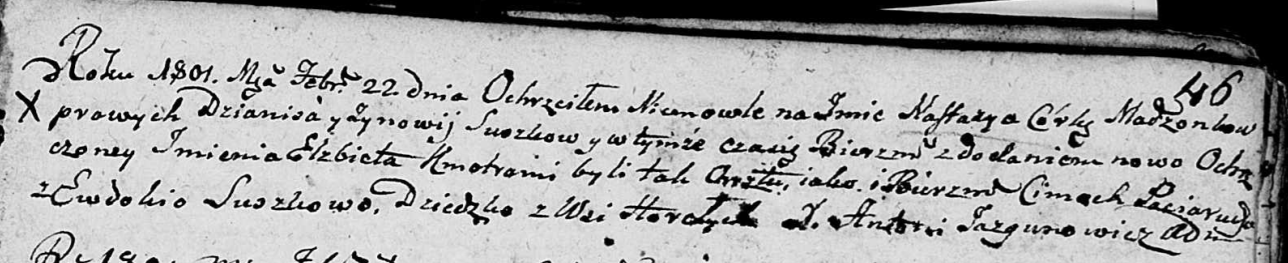 46
Roku 1801. Mca Febr. 22 dnia Ochrzciłem Niemowle na Imie Nastazya Córkę Madżonkow
X prawych Dzianisa y Zynowij Suszkow y w tymże czasię Bierzm z dodaniem nowo Ochrz
czoney Imienia Elzbieta Kmotrami byli tak Chrztu, iako i Bierzm Cimoch Paciaruda
z Ewdokio Suszkowo, Dziedzko z Wsi X. Antoni Jazgunowicz Adm